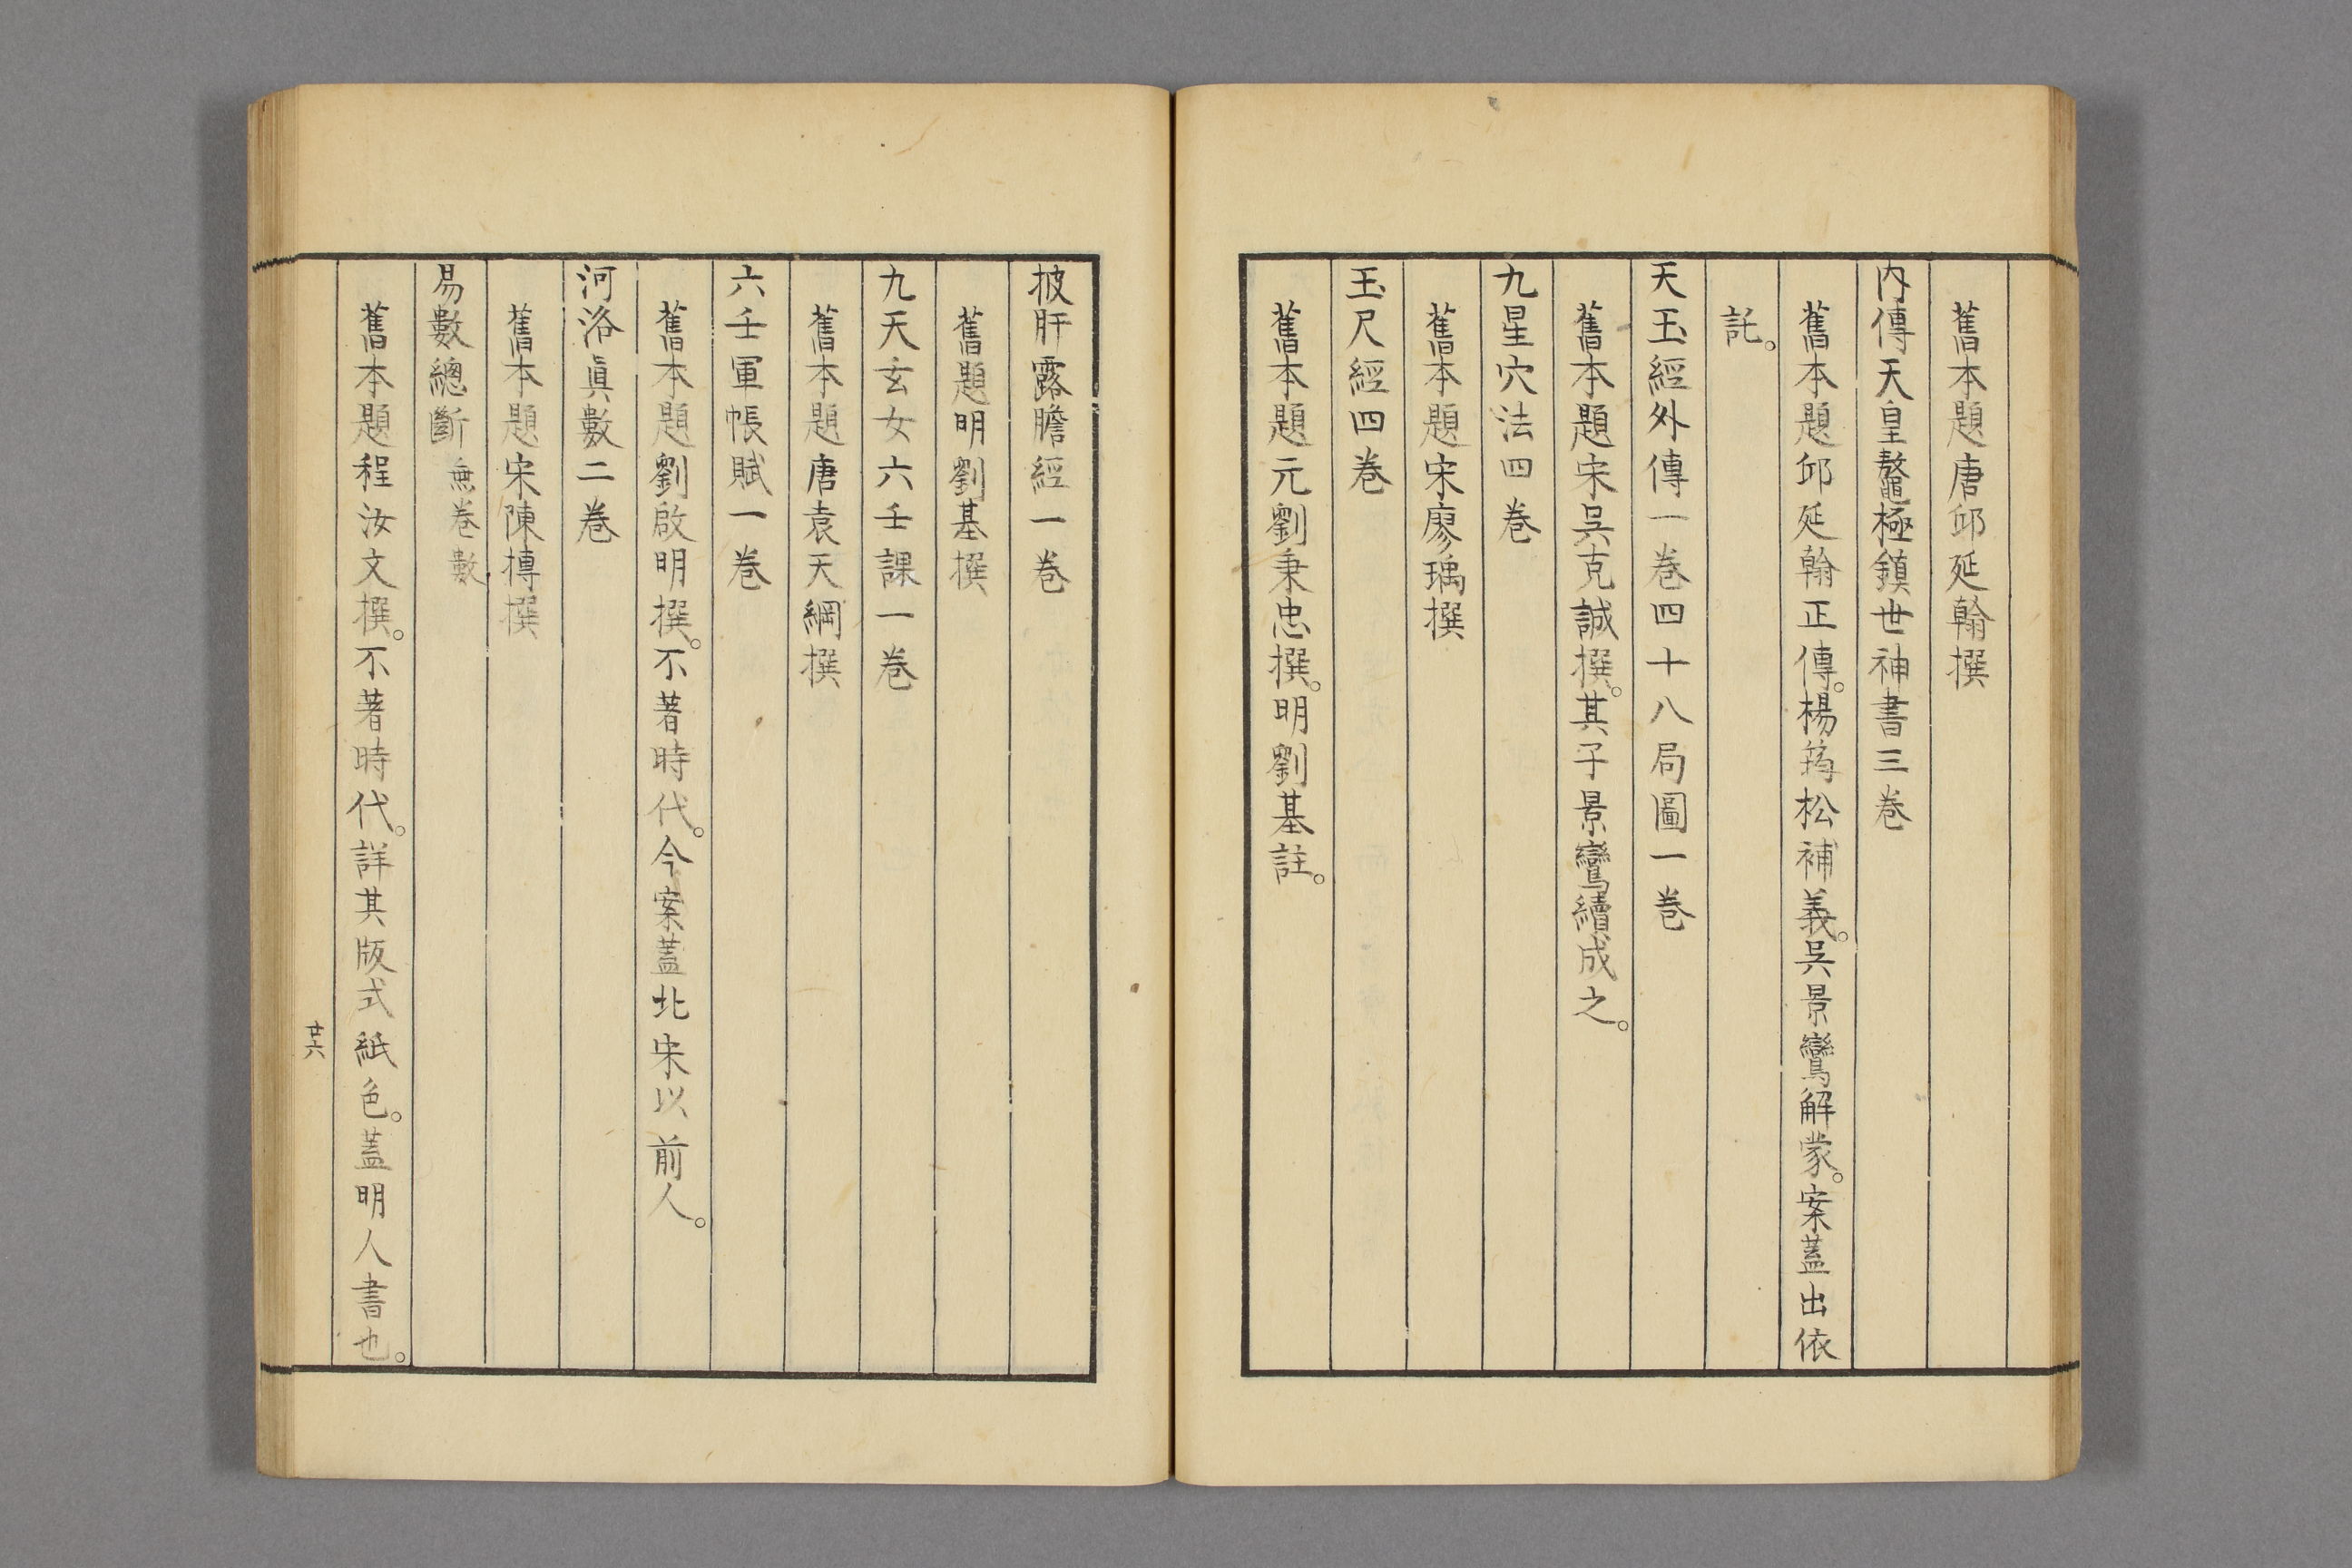 舊本題唐邱延翰撰
內傳天皇鼇極鎮世神書三卷
舊本題邱延翰正傳。楊筠松補義。吳景鸞解蒙。案蓋出依
託。
天玉經外傳一卷四十八局圖一卷
舊本題宋吳克誠撰。其子景鸞續成之。
九星穴法四卷
舊本題宋廖瑀撰
玉尺經四卷
舊本題元劉秉忠撰。明劉基註。
披肝露膽經一卷
舊題明劉基撰
九天玄女六壬課一卷
舊本題唐袁天綱撰
六壬軍帳賦一卷
舊本題劉啟明撰。不著時代。今案蓋北宋以前人。
河洛眞數二卷
舊本題宋陳摶撰
易數總斷 無卷數
舊本題程汝文撰。不著時代。詳其版式紙色。蓋明人書也。
廿六